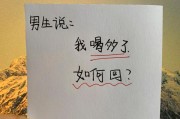 男生说：
我喝多了.
如何回？